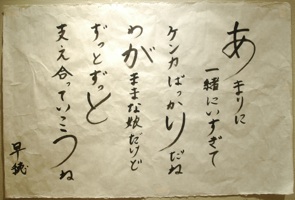 あまりに
一緒にいすぎて
ケンカばっかりだね
わがままな娘だけど
ずっとずっと
支え合っていこうね